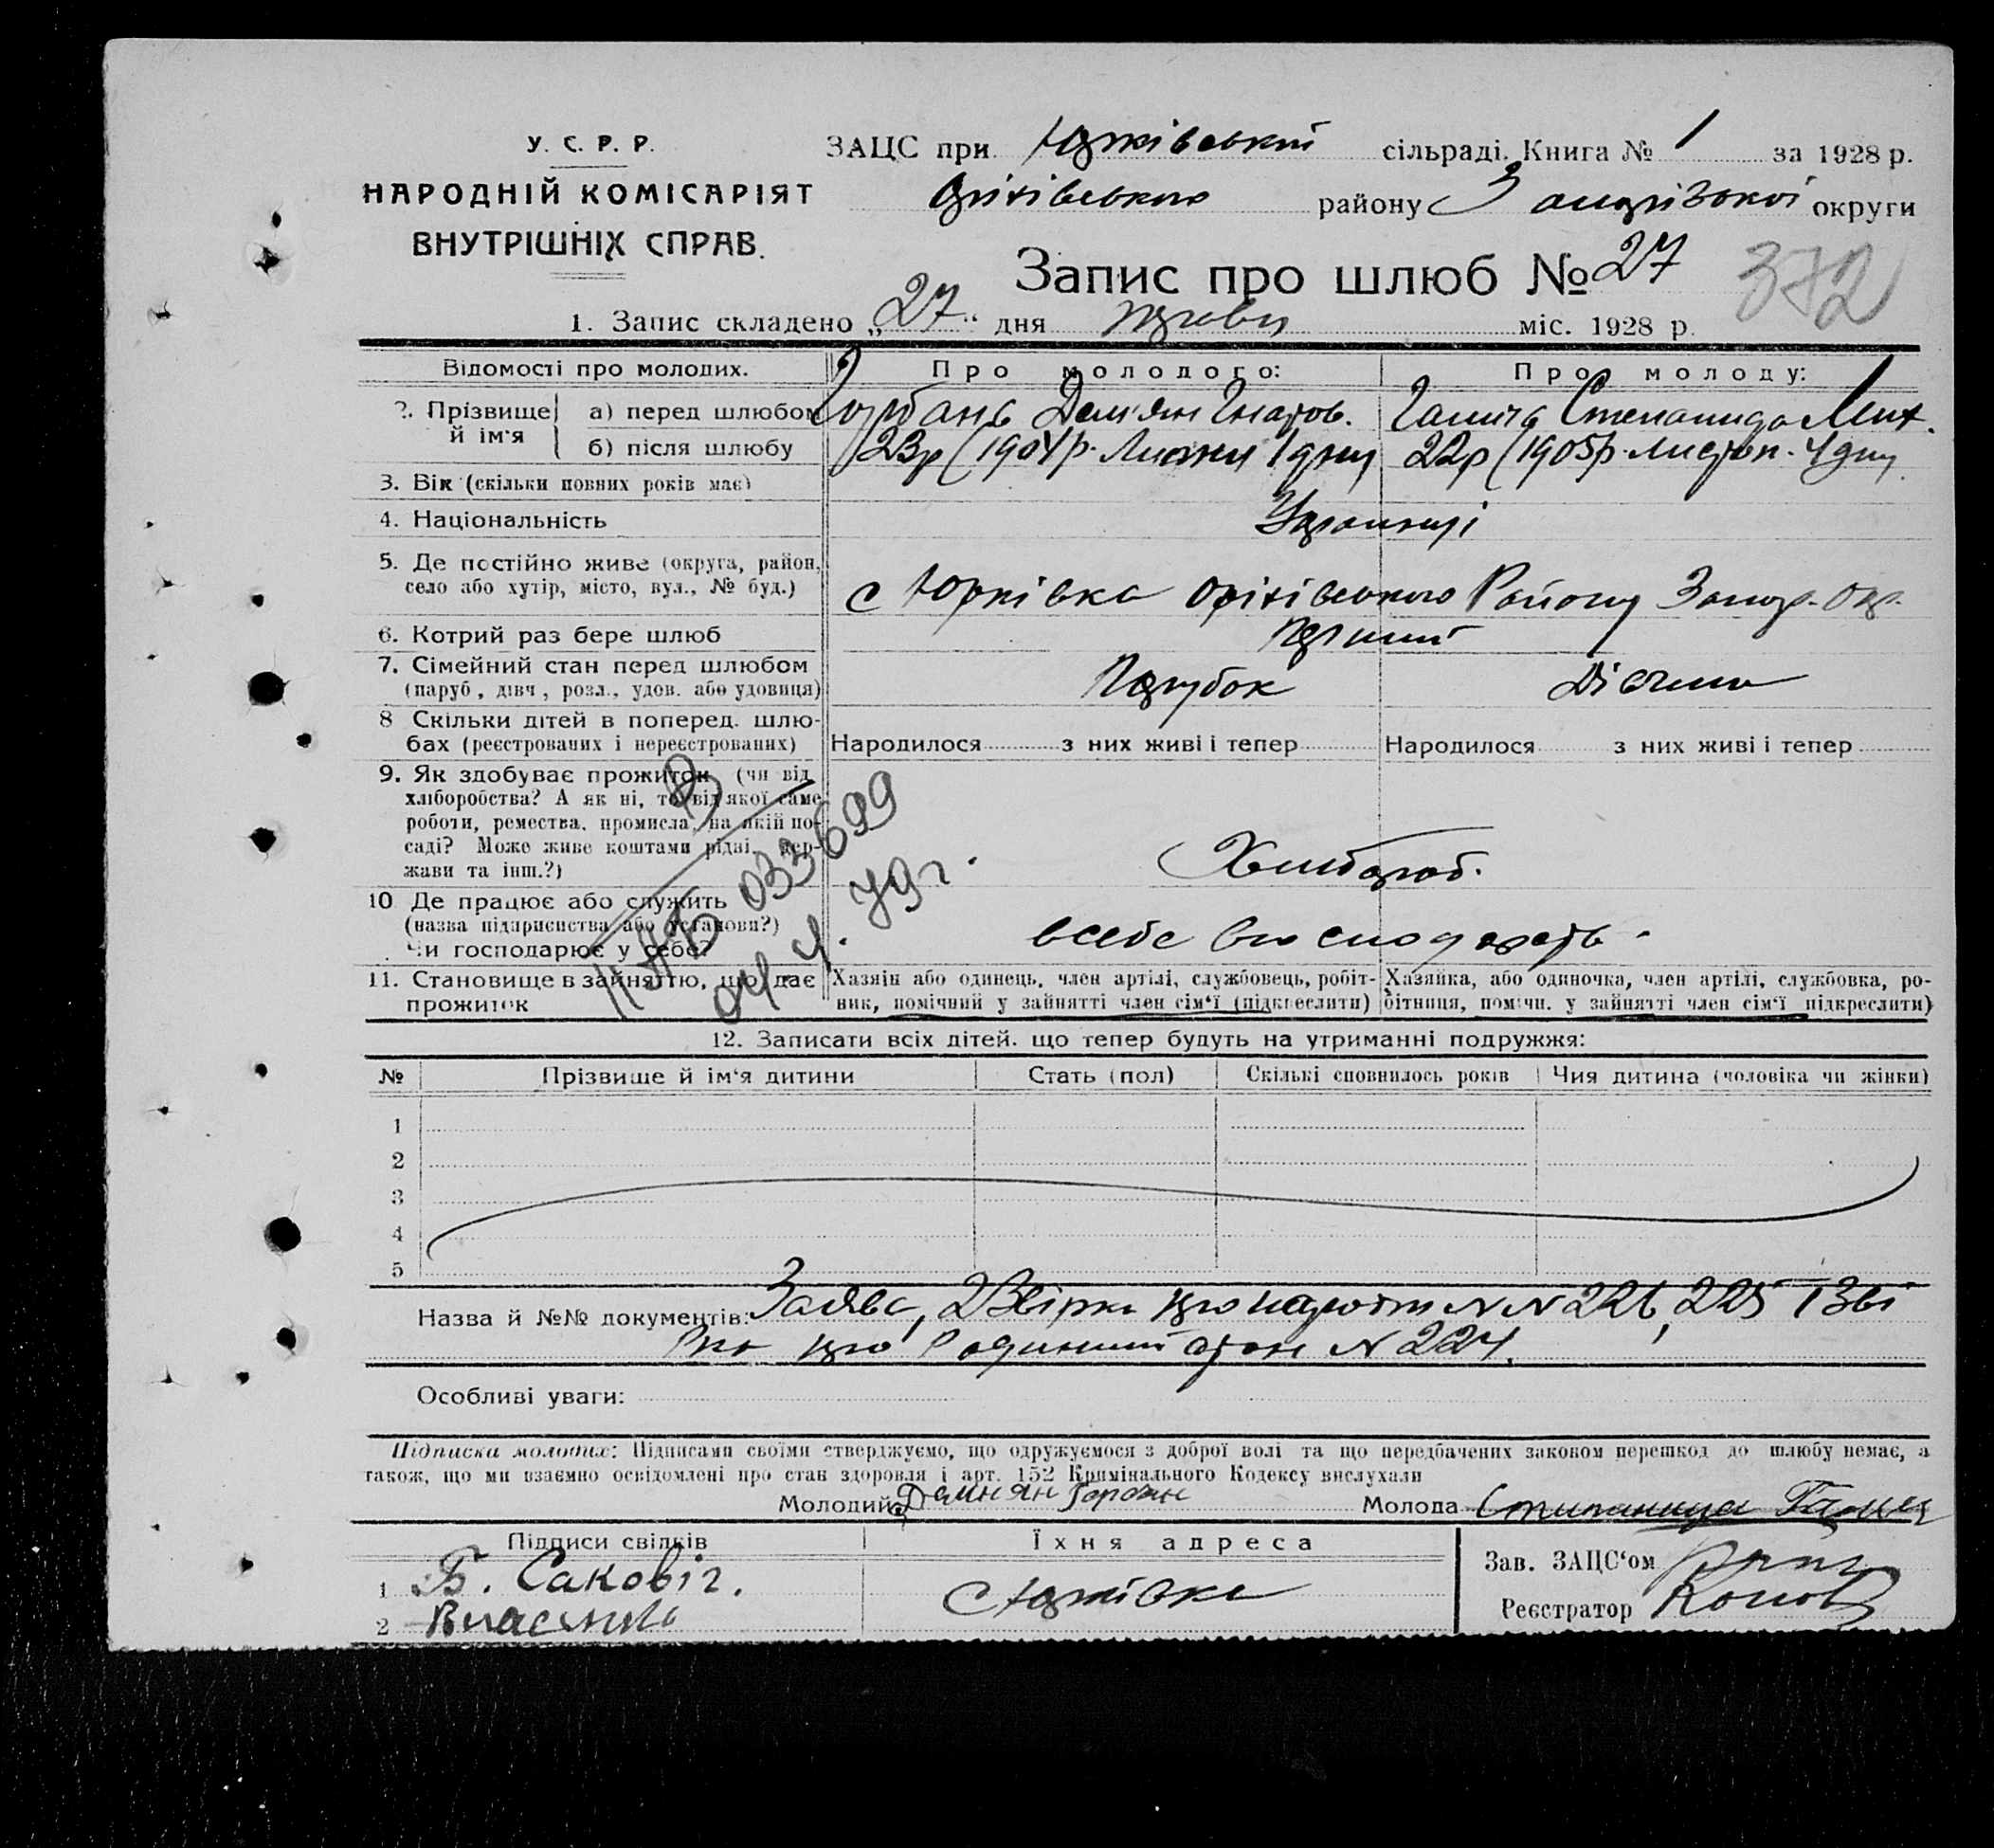 У. С. Р. Р.
НАРОДНІЙ КОМІСАРІЯТ
ВНУТРІШНІХ СПРАВ.
ЗАЦС при Юрківській сільраді. Книга № 1 за 1928 р.
Оріхівського району Запорізької округи
Запис про шлюб № 27
372
1. Запис складено „27“ дня міс. 1928 р.
Відомості про молодих. Про молодого: Про молоду:
2. Прізвище й ім'я а) перед шлюбом Горбань Дем'ян Гнатов. Галича Степанида Мих.
б) після шлюбу
3. Вік (скільки повних років має) 23р (1904р. 1 дня 22р (1905р. листоп. 4 дня
4. Національність Українці
5. Де постійно живе (округа, район, село або хутір, місто, вул., № буд.) с Юрківка Оріхівського Району Запор. Окр.
6. Котрий раз бере шлюб перший
7. Сімейний стан перед шлюбом (паруб, дівч, розл., удов. або удовиця) Парубок Дівчина
8 Скільки дітей в поперед. шлюбах (реєстрованих і нереєстрованих) Народилося з них живі і тепер Народилося з них живі і тепер
9. Як здобуває прожиток (чи від хліборобства? А як ні, то від якої саме роботи, ремества, промисла, на якій посаді? Може живе коштами рідні, держави та інш.?) Хлібороб.
10 Де працює або служить (назва підприєнства або установи?) Чи господарює у себе? в себе в господарств.
11. Становище в зайняттю, що дає прожиток Хазяїн або одинець, член артілі, службовець, робітник, помічний у зайнятті член сім'ї (підкреслити) Хазяйка, або одиночка, член артілі, службовка, робітниця, помічн. у зайнятті член сім'ї підкреслити)
II АБ 033699
04 4. 79 г.
12. Записати всіх дітей. що тепер будуть на утриманні подружжя:
№ Прізвище й ім'я дитини Стать (пол) Скількі сповнилось років Чия дитина (чоловіка чи жінки)
1
2
3
4
5
Назва й №№ документів: Заява, 2 Звірки про NN 226, 225 і Зві
рка про Родинний стан N 224.
Особливі уваги:
Підписка молодих: Підписами своїми стверджуємо, що одружуємося з доброї волі та що передбачених законом перешкод до шлюбу немає, а
також, що ми взаємно освідомлені про стан здоровля і арт. 152 Кримінального Кодексу вислухали
Молодий Демиян Горбань Молода Степанида Галич
Підписи свідків Їхня адреса
1 Б. Саковіч. с Юрківка
2
Зав. ЗАЦС'ом
Реєстратор